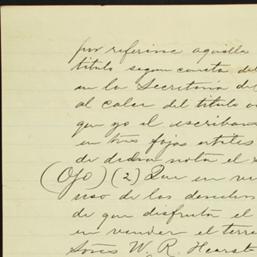 por referirse aquella
titulo segun consta del
en la Secretaría de
al calce del titulo o
que yo el escribano
en tres fojas utiles
de dicha nota el s
(Ojo) (2) Que en ve
uso de los derechos
de que disfruta el
en vender el terre
Señor W. R. Hearst